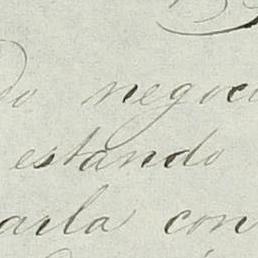 do negoci
estando
arla con